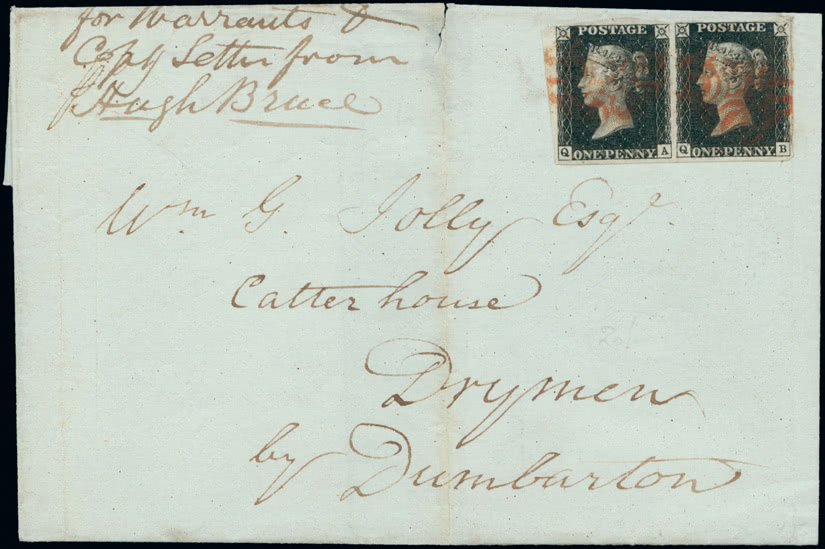 for Warrants &
Copy Letter from
Hugh Bruce
POSTAGE POSTAGE
Q ONE PENNY A Q ONE PENNY B
Wm G. Jolly Esqr.
Catter house
Drymen
by Dumbarton